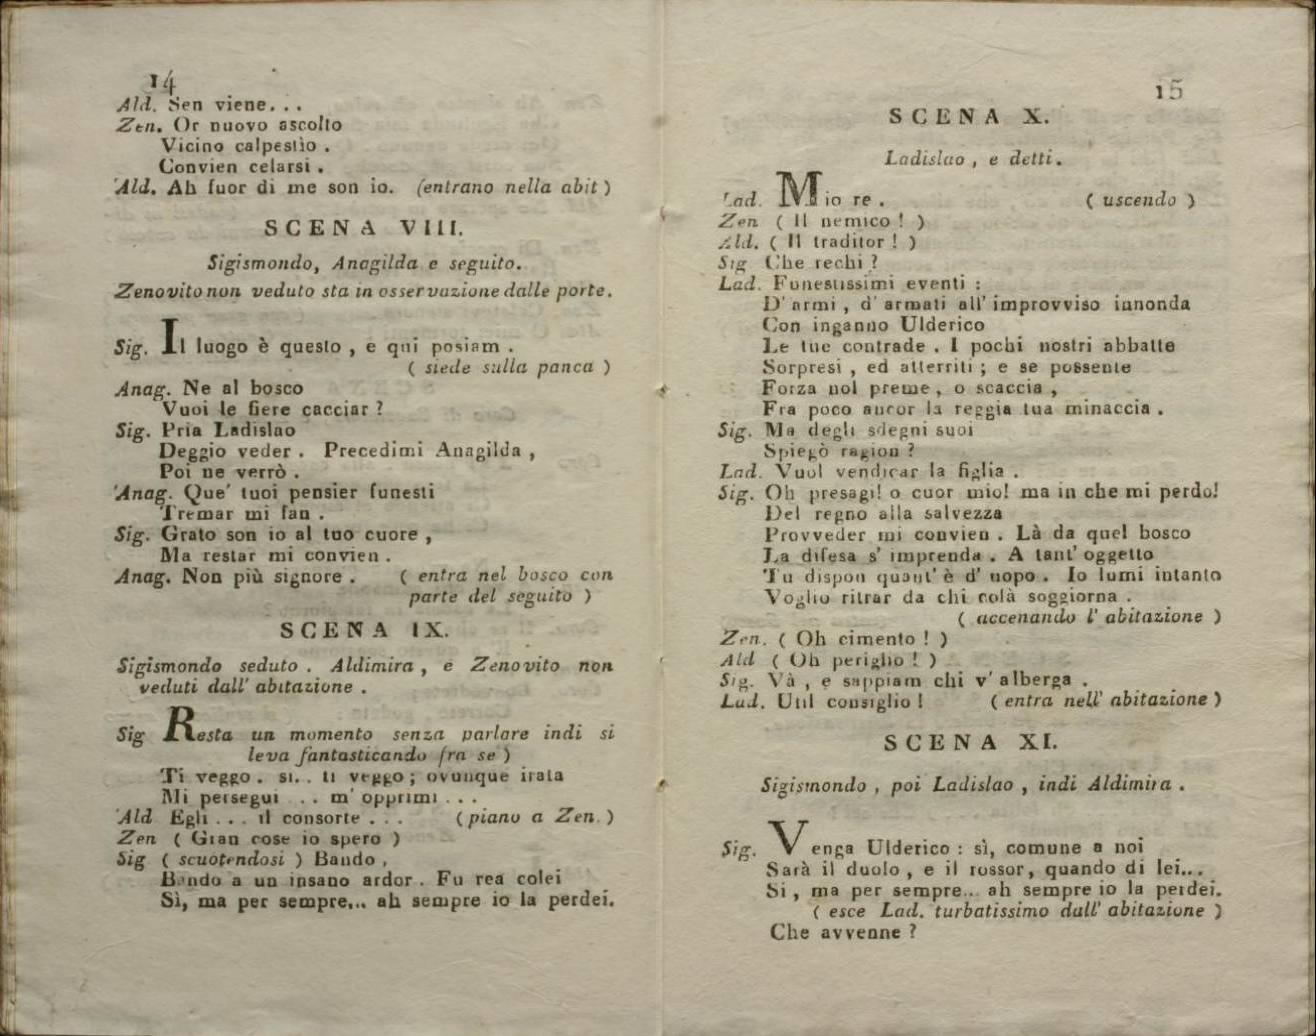 14
Ald. Sen viene...
Zen. Or nuovo ascolto
Vicino calpestìo .
Convien celarsi .
Ald. Ah fuor di me son io. (entrano nella abit )
SCENA VIII.
Sigismondo, Anagilda e seguito.
Zenovito non veduto sta in osservazione dalle porte.
Sig. Il luogo è questo , e qui posiam .
( siede sulla panca )
Anag. Ne al bosco
Vuoi le fiere cacciar ?
Sig. Pria Ladislao
Deggio veder . Precedimi Anagilda ,
Poi ne verrò .
Anag. Que' tuoi pensier funesti
Tremar mi fan .
Sig. Grato son io al tuo cuore ,
Ma restar mi convien .
Anag. Non più signore . ( entra nel bosco con
parte del seguito )
SCENA IX.
Sigismondo seduto . Aldimira , e Zenovito non
veduti dall' abitazione .
Sig Resta un momento senza parlare indi si
leva fantasticando fra se )
Ti veggo . si.. ti veggo ; ovunque irata
Mi persegui ... m' opprimi ...
Ald Egli ... il consorte ... (piano a Zen.)
Zen ( Gran cose io spero )
Sig ( scuotendosi ) Bando ,
Bando a un insano ardor . Fu rea colei
Sì, ma per sempre... ah sempre io la perdei.
15
SCENA X.
Ladislao , e detti .
Lad. Mio re . ( uscendo )
Zen ( Il nemico ! )
Ald. ( Il traditor ! )
Sig Che rechi ?
Lad. Funestissimi eventi :
D' armi , d' armati all' improvviso innonda
Con inganno Ulderico
Le tue contrade . I pochi nostri abbatte
Sorpresi , ed atterriti ; e se possente
Forza nol preme , o scaccia ,
Fra poco ancor la reggia tua minaccia .
Sig. Ma degli sdegni suoi
Spiegò ragion ?
Lad. Vuol vendicar la figlia .
Sig. Oh presagi! o cuor mio! ma in che mi perdo!
Del regno alla salvezza
Provveder mi convien . Là da quel bosco
La difesa s' imprenda . A tant' oggetto
Tu dispon quant' è d' uopo . Io lumi intanto
Voglio ritrar da chi colà soggiorna .
( accenando l' abitazione )
Zen. ( Oh cimento ! )
Ald ( Oh periglio ! )
Sig. Và , e sappiam chi v' alberga .
Lad. Util consiglio ! ( entra nell' abitazione )
SCENA XI.
Sigismondo , poi Ladislao , indi Aldimira .
Sig. Venga Ulderico : sì, comune a noi
Sarà il duolo , e il rossor, quando di lei...
Si , ma per sempre... ah sempre io la perdei.
( esce Lad. turbatissimo dall' abitazione )
Che avvenne ?